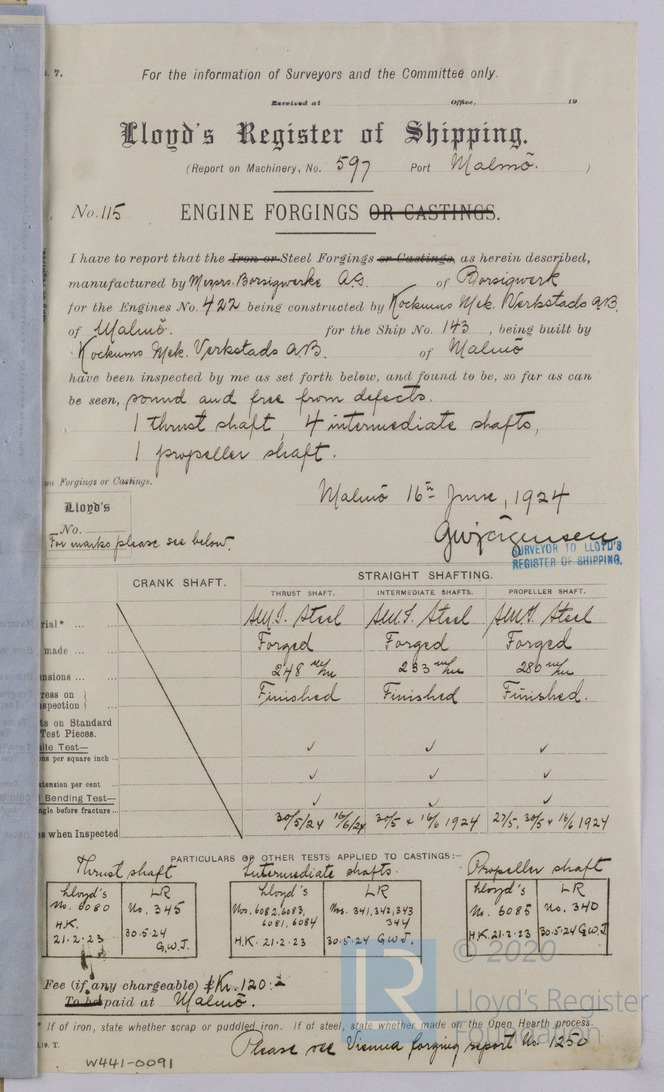 . 7.
For the information of Surveyors and the Committee only.
Received at Office, 19
Lloyd's Register of Shipping.
(Report on Machinery, No. 597 Port Malmö. )
No. 115 ENGINE FORGINGS OR CASTINGS.
I have to report that the Iron or Steel Forgings or Castings, as herein described,
manufactured by Messrs. Borsigwerke A.G. of Borsigwerk
for the Engines No. 422 being constructed by Kockums Mek. Verkstads A.B.
of Malmö. for the Ship No. 143, being built by
Kockums Mek. Verkstads A.B. of Malmö
have been inspected by me as set forth below, and found to be, so far as can
be seen, sound and free from defects.
1 thrust shaft, 4 intermediate shafts,
1 propeller shaft.
on Forgings or Castings.
Malmö 16th June, 1924
Lloyd's
No.
For marks please see below.
G.W. Jörgensen
SURVEYOR TO LLOYD'S
REGISTER OF SHIPPING.
CRANK SHAFT. STRAIGHT SHAFTING.
THRUST SHAFT. INTERMEDIATE SHAFTS. PROPELLER SHAFT.
rial* ... ... S.M.I. Steel S.M.I. Steel S.M.I. Steel
made ... ... Forged Forged Forged
nsions ... ... 248 m/m 233 m/m 280 m/m
ress on } Finished Finished Finished.
spection } ...
ts on Standard
Test Pieces.
ile Test— ✓ ✓ ✓
ns per square inch ...
✓ ✓ ✓
xtension per cent ...
Bending Test— ✓ ✓ ✓
ngle before fracture ...
s when Inspected 30/5/24 16/6/24 30/5 & 16/6 1924 27/5. 30/5 & 16/6 1924
PARTICULARS OF OTHER TESTS APPLIED TO CASTINGS:—
Thrust shaft Intermediate shafts. Propeller shaft
Lloyd's LR Lloyd's LR Lloyd's LR
No. 6080 No. 345 Nos. 6082, 6083, Nos. 341, 342, 343 No. 6085 No. 340
6081, 6084 344
H.K. 21.2.23 30.5.24 G.W.J. H.K. 21.2.23 30.5.24 G.W.J. H.K. 21.2.23 30.5.24 G.W.J.
Fee (if any chargeable) £Kr. 120:-
To be paid at Malmö.
* If of iron, state whether scrap or puddled iron. If of steel, state whether made on the Open Hearth process.
Please see Vienna forging report No. 1250
W441-0091
© 2020
LR
Lloyd's Register
Foundation